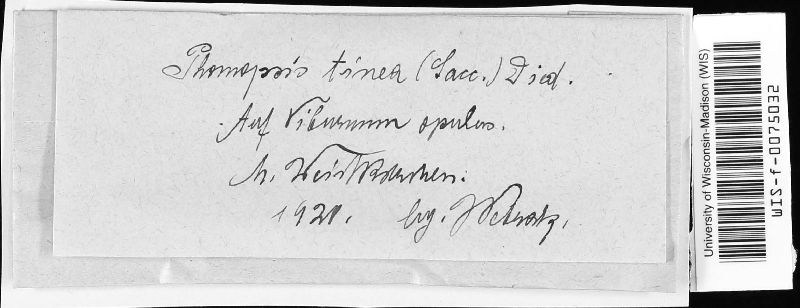 Phomopsis tinea (Sacc.) Died.
Auf Viburnum opulus.
1921. leg.
University of Wisconsin-Madison (WIS)
WIS-f-0075032